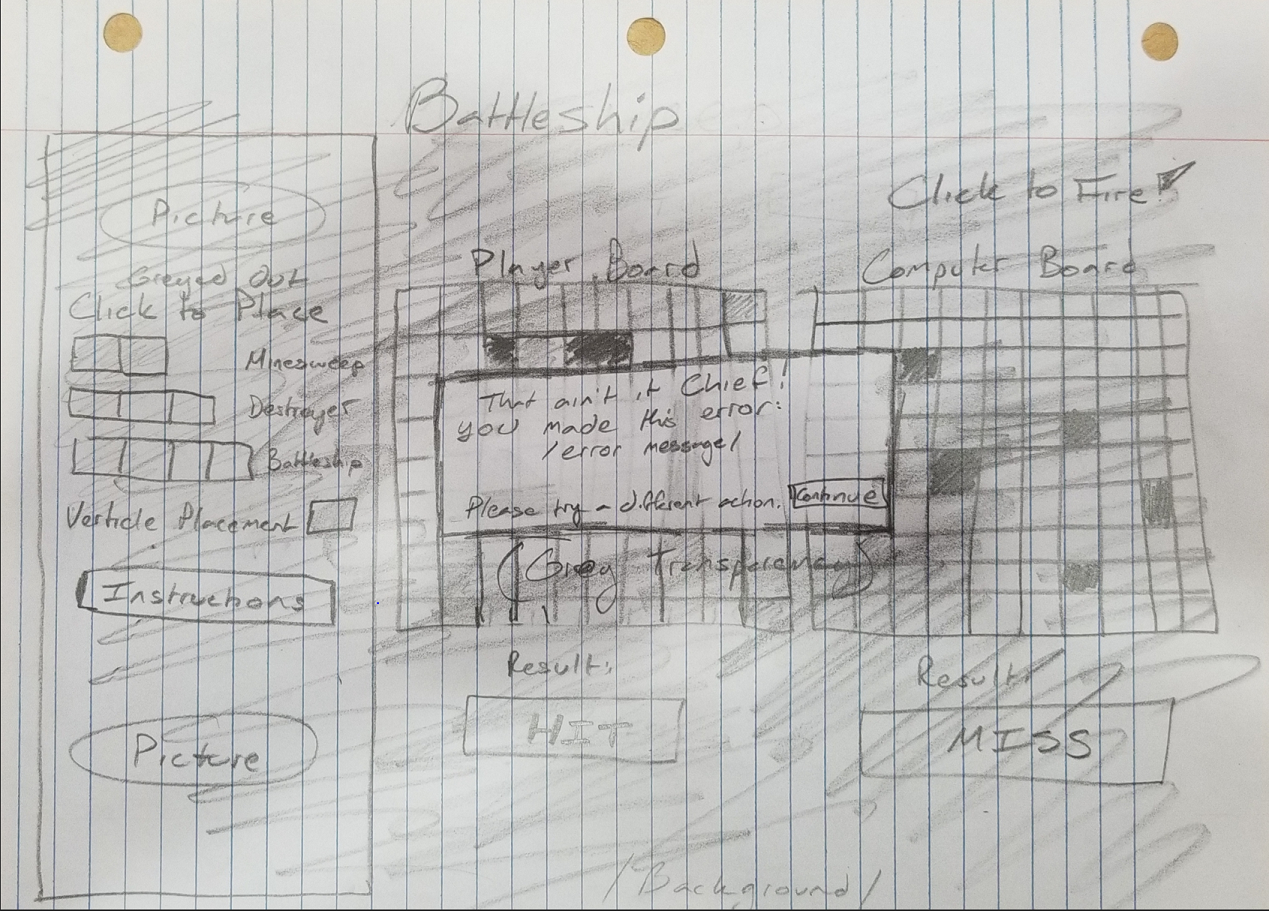 Battleship
Click to Fire!
Picture
Greyed Out
Click to Place
Minesweep
Destroyer
Battleship
Verticle Placement
Instructions
Picture
Player Board
Computer Board
That ain't it Chief!
you made this error:
/error message/
Please try a different action.
Continue
(Grey Transparency)
Result:
HIT
Result:
MISS
/Background/